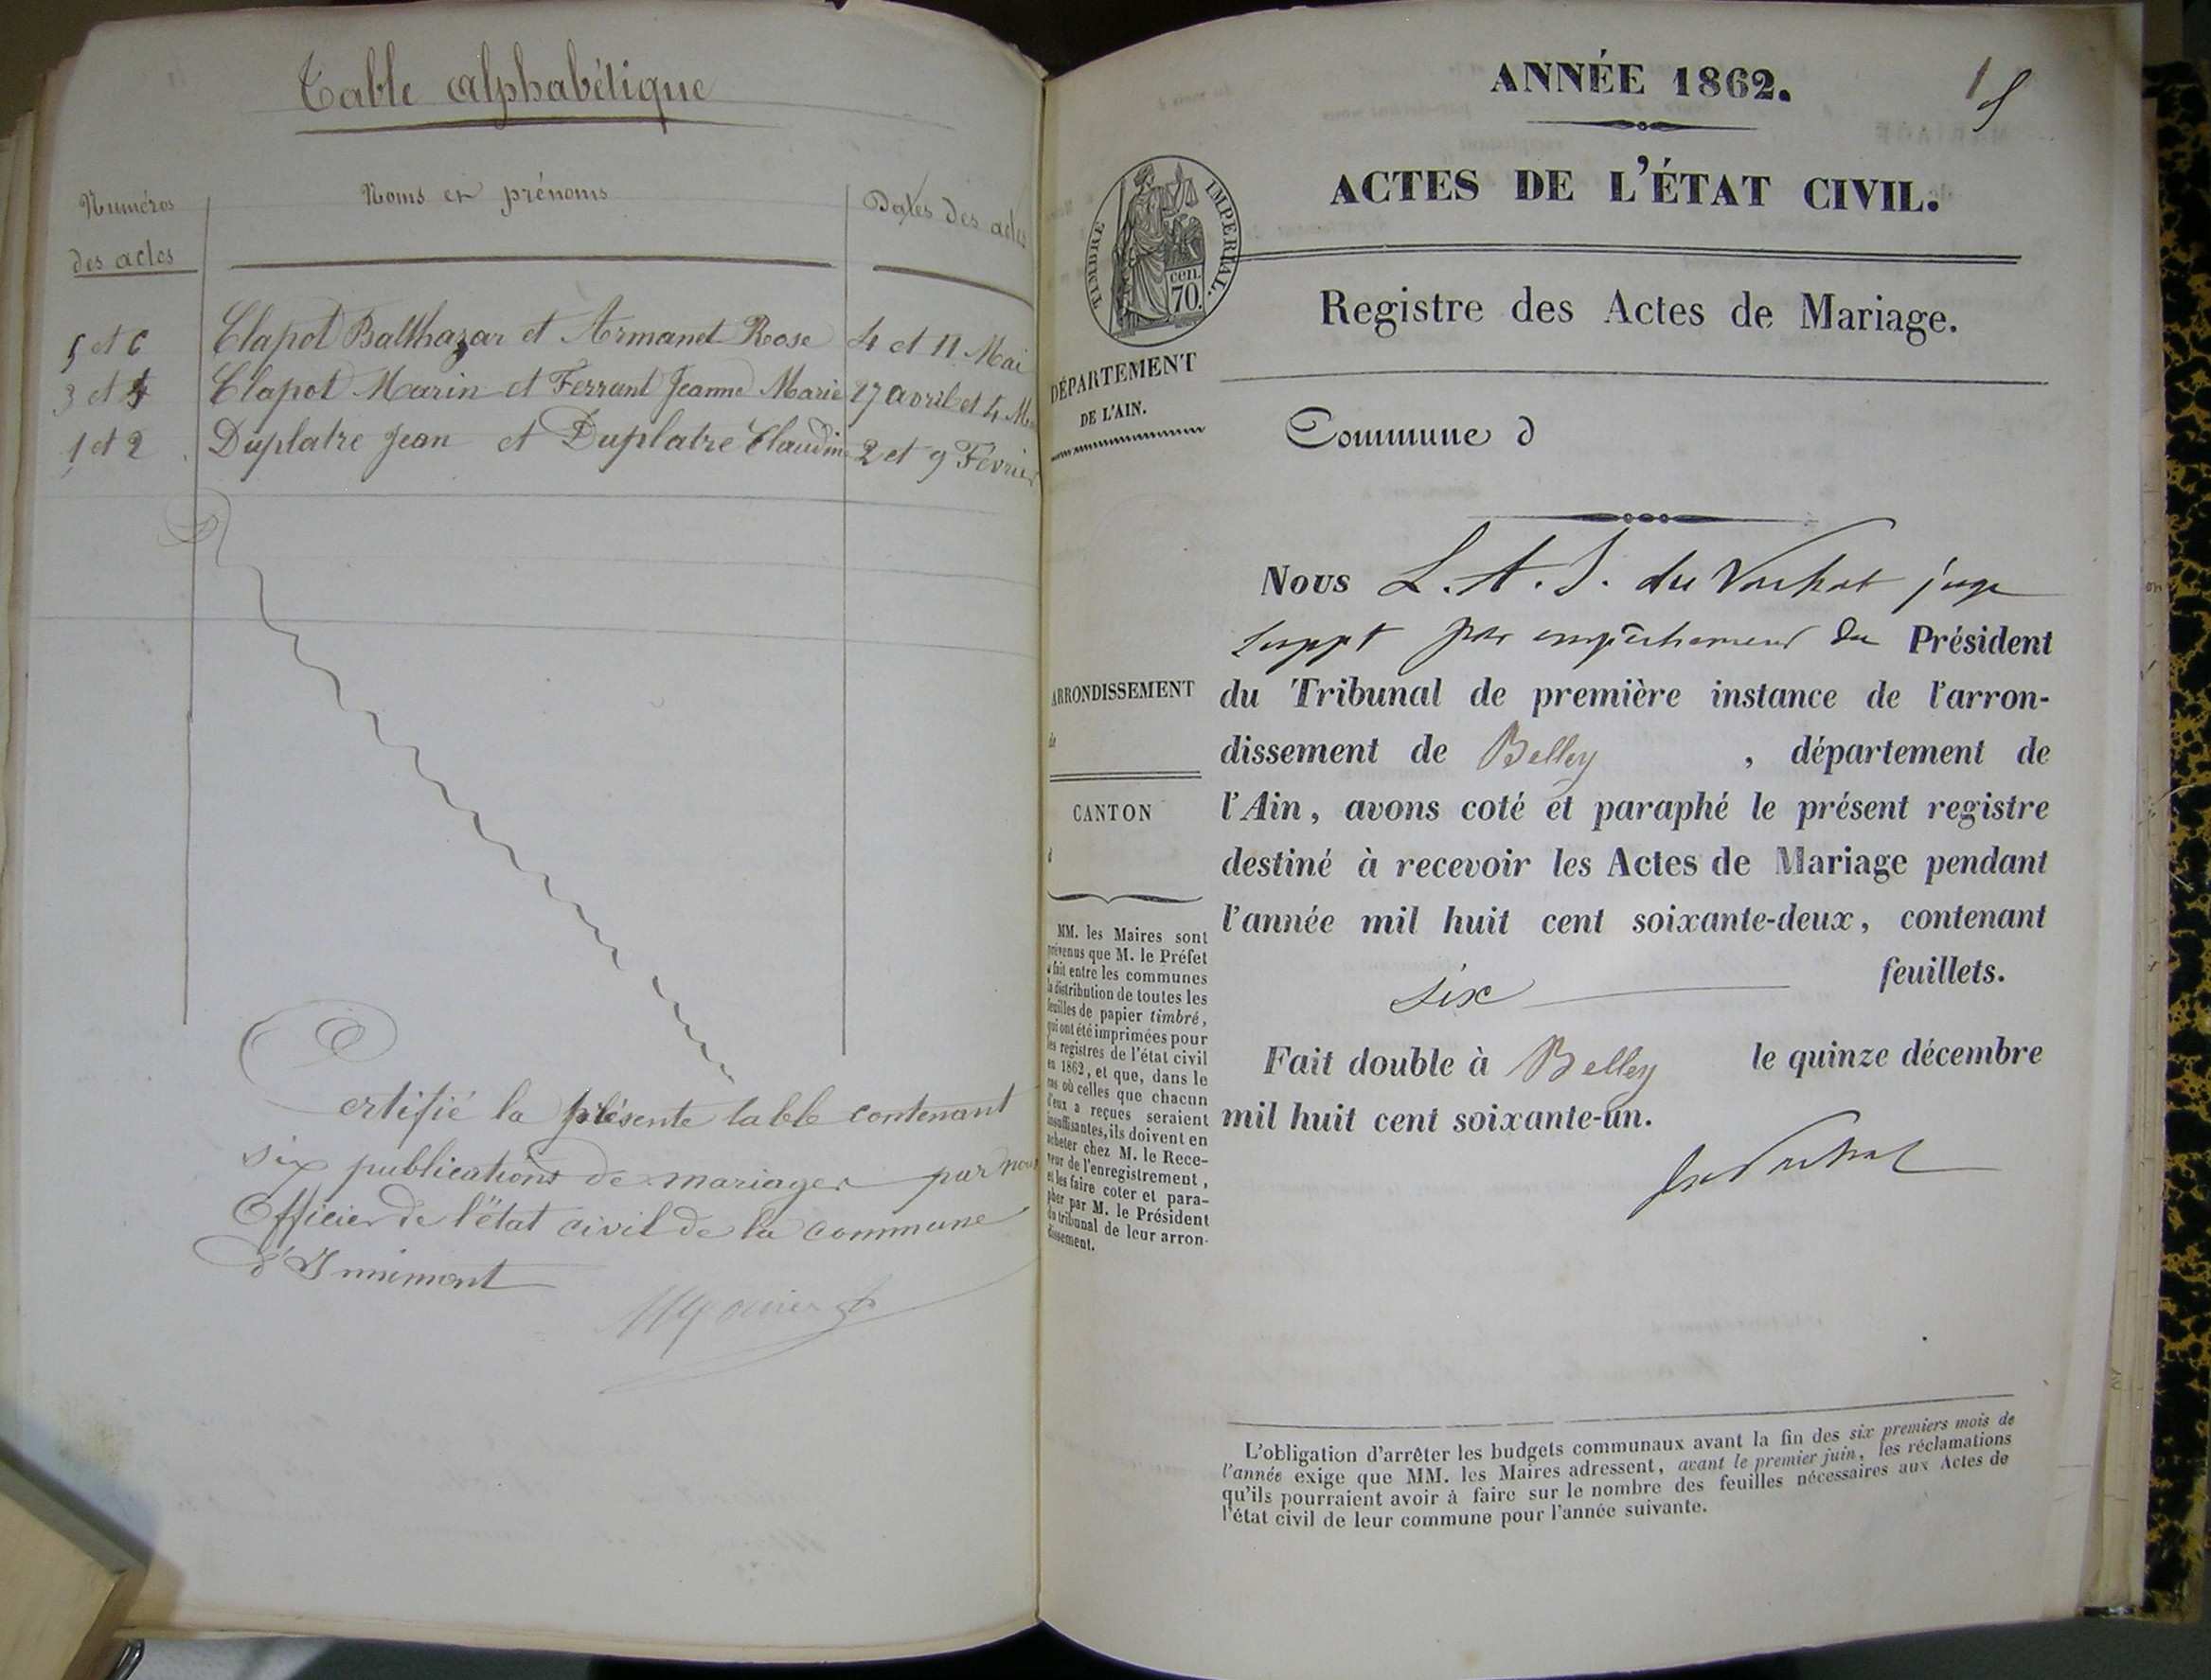 Table alphabétique
Numéros
des actes
Noms et prénoms
Dates des actes
5 et 6 Clapot Balthazar et Armanet Rose 4 et 11 Mai
3 et 4 Clapot Marin et Ferrant Jeanne Marie 27 avril et 4 M
1 et 2 Duplatre Jean et Duplatre Claudin 2 et 9 Février
Certifié la présente table contenant
six publications de mariages par nous
Officier de l'état civil de la commune
d'Innimont
ANNÉE 1862.
1
ACTES DE L'ÉTAT CIVIL.
TIMBRE IMPERIAL.
cen.
70.
Registre des Actes de Mariage.
DÉPARTEMENT
DE L'AIN.
Commune d
Nous L. A. J. du Vachat juge
suppt par empêchement du Président
du Tribunal de première instance de l'arron-
dissement de Belley , département de
l'Ain, avons coté et paraphé le présent registre
destiné à recevoir les Actes de Mariage pendant
l'année mil huit cent soixante-deux, contenant
six feuillets.
Fait double à Belley le quinze décembre
mil huit cent soixante-un.
ARRONDISSEMENT
de
CANTON
d
MM. les Maires sont
prévenus que M. le Préfet
a fait entre les communes
la distribution de toutes les
feuilles de papier timbré,
qui ont été imprimées pour
les registres de l'état civil
en 1862, et que, dans le
cas où celles que chacun
d'eux a reçues seraient
insuffisantes, ils doivent en
acheter chez M. le Rece-
veur de l'enregistrement,
et les faire coter et para-
pher par M. le Président
du tribunal de leur arron-
dissement.
L'obligation d'arrêter les budgets communaux avant la fin des six premiers mois de
l'année exige que MM. les Maires adressent, avant le premier juin, les réclamations
qu'ils pourraient avoir à faire sur le nombre des feuilles nécessaires aux Actes de
l'état civil de leur commune pour l'année suivante.